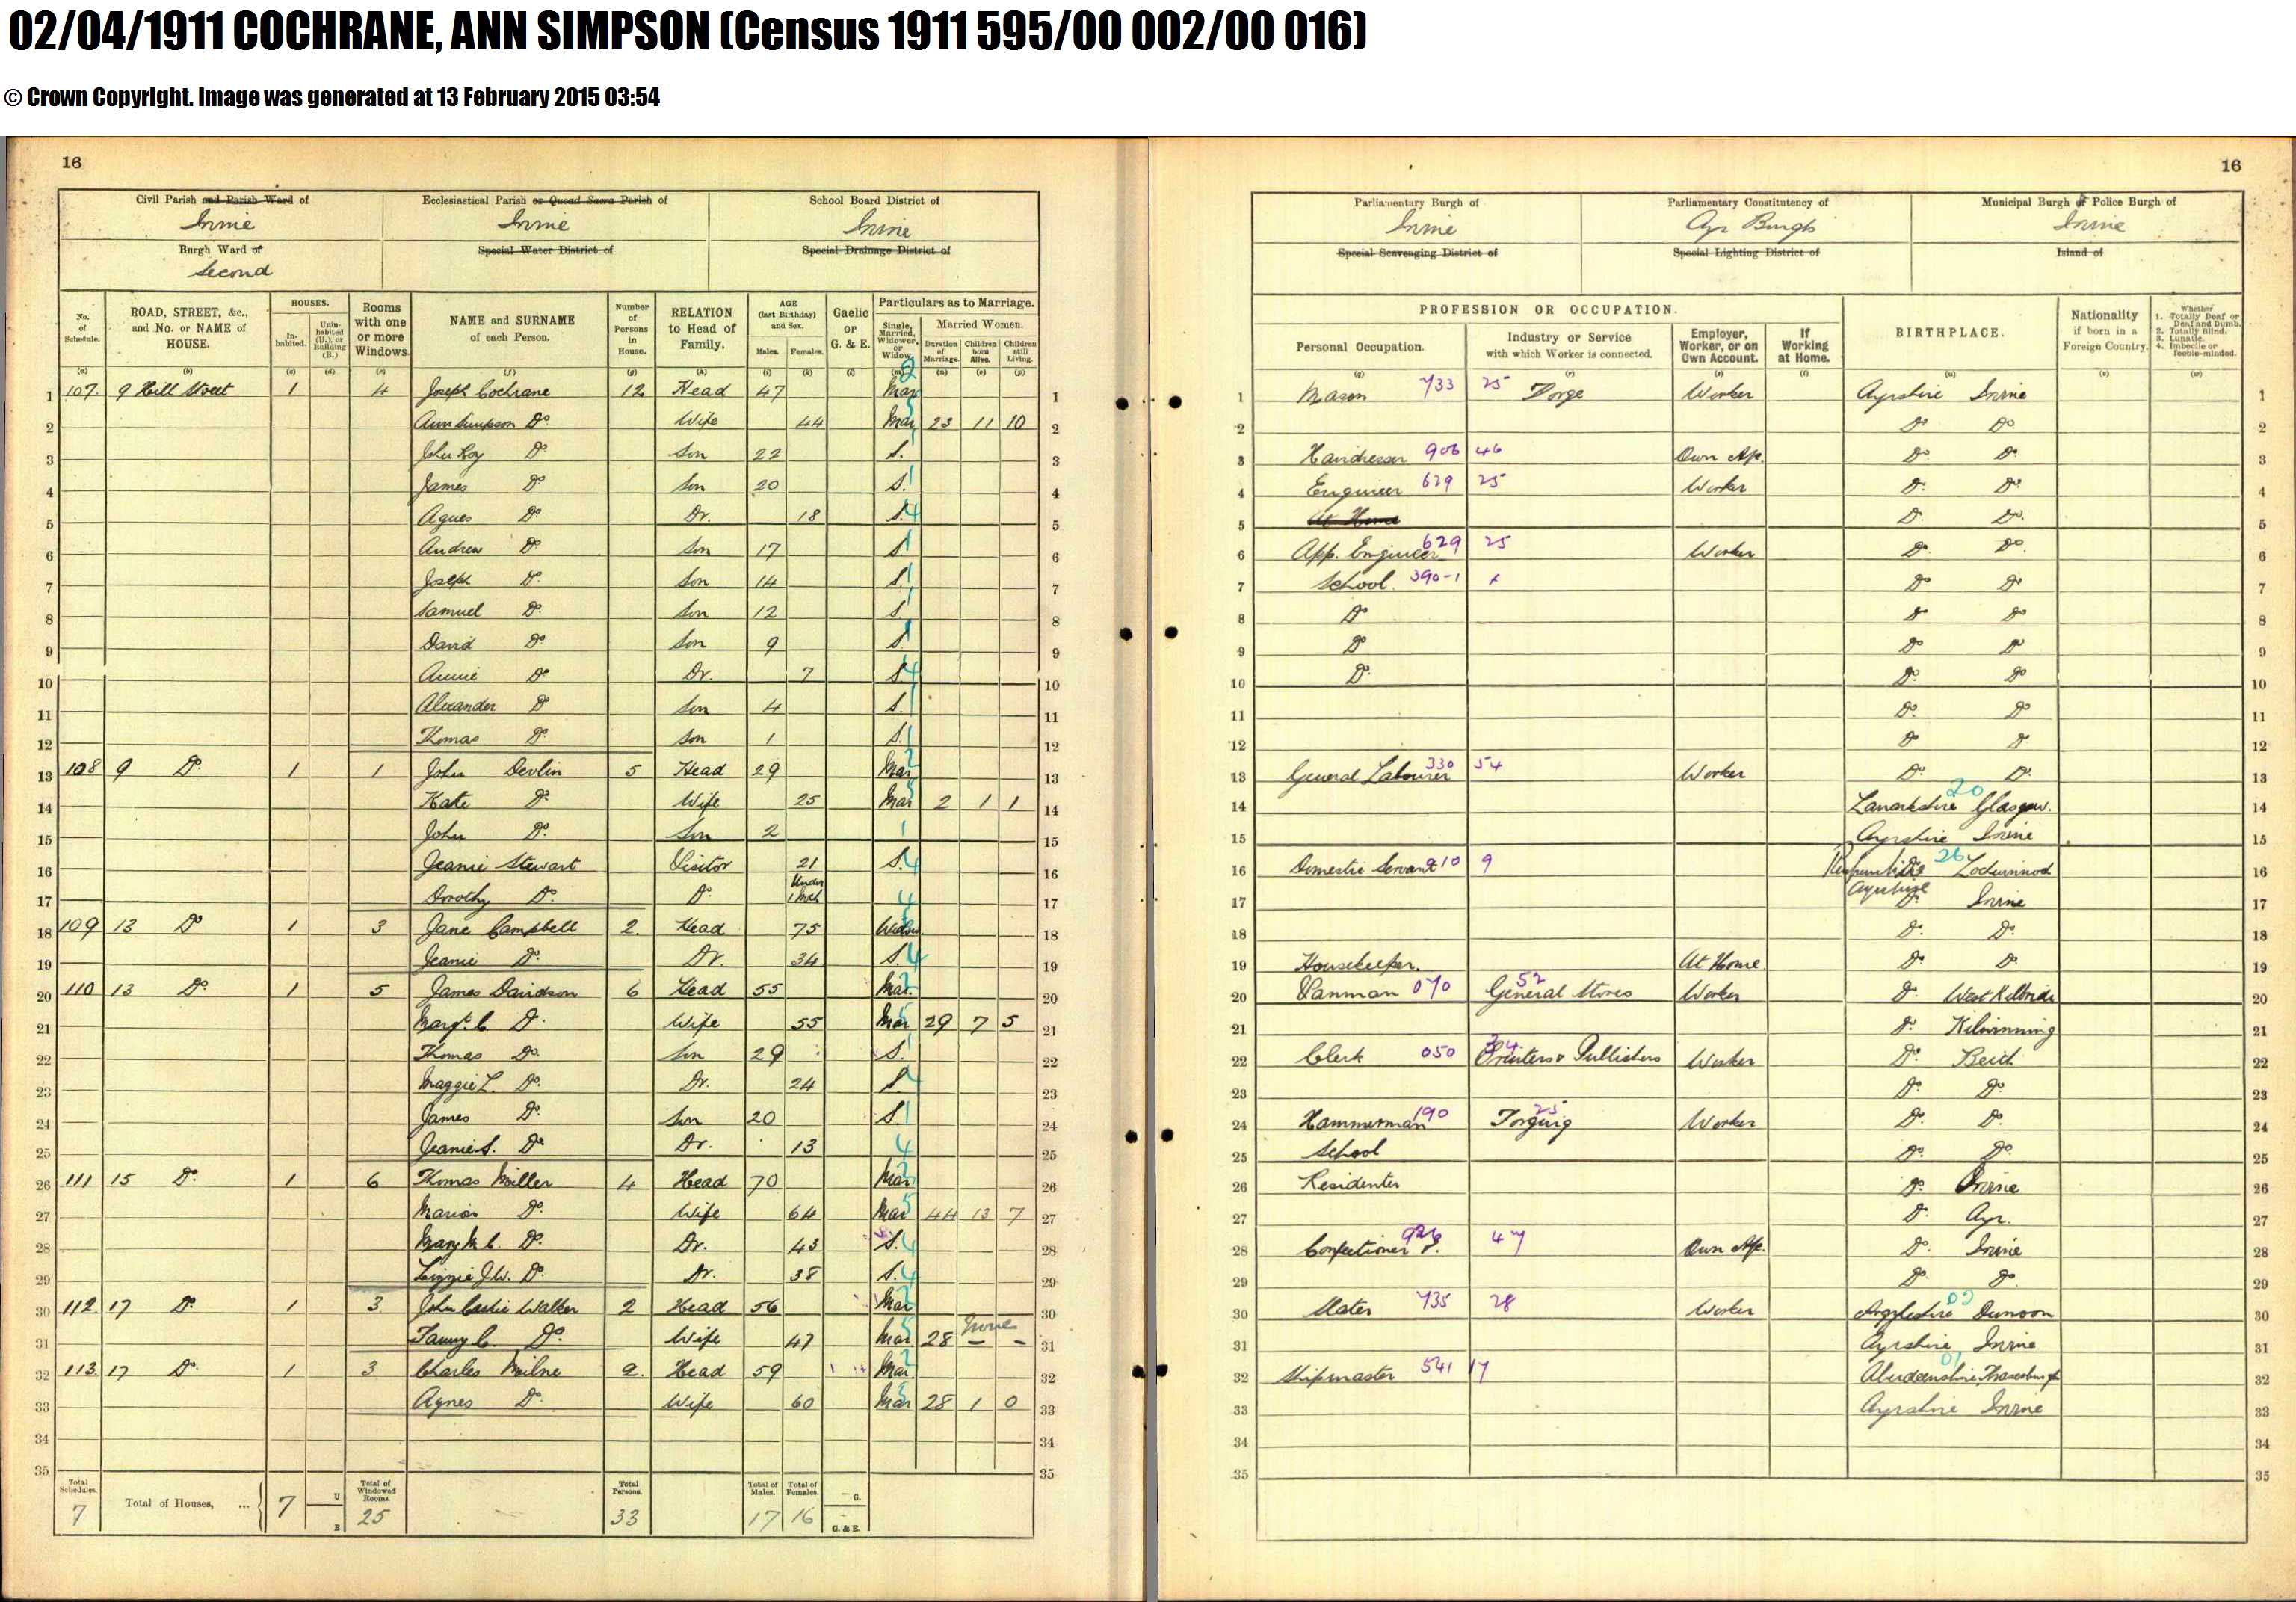 02/04/1911 COCHRANE, ANN SIMPSON (Census 1911 595/00 002/00 016)
© Crown Copyright. Image was generated at 13 February 2015 03:54
16
Civil Parish and Parish Ward of Ecclesiastical Parish or Quoad Sacra Parish of School Board District of
Irvine Irvine Irvine
Burgh Ward of Special Water District of Special Drainage District of
Second
No. of Schedule. ROAD, STREET, &c., and No. or NAME of HOUSE. HOUSES. Inhabited. Uninhabited (U.), or Building (B.) Rooms with one or more Windows. NAME and SURNAME of each Person. Number of Persons in House. RELATION to Head of Family. AGE (last Birthday) and Sex. Males. Females. Gaelic or G. & E. Particulars as to Marriage. Single, Married, Widower, or Widow. Married Women. Duration of Marriage. Children born Alive. Children still Living.
1 107. 9 Hill Street 1 4 Joseph Cochrane 12 Head 47 Mar 2 1
2 Ann Simpson Do. Wife 44 Mar 23 11 10 2
3 John Do. Son 22 S. 3
4 James Do. Son 20 S. 1 4
5 Agnes Do. Dr. 18 S. 4 5
6 Andrew Do. Son 17 S. 1 6
7 Joseph Do. Son 14 S. 1 7
8 Samuel Do. Son 12 S. 1 8
9 David Do. Son 9 S. 1 9
10 Annie Do. Dr. 7 S. 4 10
11 Alexander Do. Son 4 S. 1 11
12 Thomas Do. Son 1 S. 1 12
13 108 9 Do. 1 1 John Devlin 5 Head 29 Mar 2 13
14 Kate Do. Wife 25 Mar 2 1 1 14
15 John Do. Son 2 1 15
16 Jeanie Stewart Visitor 21 S. 4 16
17 Dorothy Do. Do. Under 1 Mth 4 17
18 109 13 Do. 1 3 Jane Campbell 2. Head 75 Widow 18
19 Jeanie Do. Dr. 34 S. 4 19
20 110 13 Do. 1 5 James Davidson 6 Head 55 Mar. 2 20
21 Margt. C. Do. Wife 55 Mar 29 7 5 21
22 Thomas Do. Son 29 S. 1 22
23 Maggie L. Do. Dr. 24 S. 23
24 James Do. Son 20 S. 1 24
25 Jeanie S. Do. Dr. 13 4 25
26 111 15 Do. 1 6 Thomas Miller 4 Head 70 Mar 2 26
27 Marion Do. Wife 64 Mar 5 44 13 7 27
28 Mary M. C. Do. Dr. 43 S. 4 28
29 Lizzie J. W. Do. Dr. 38 S. 4 29
30 112. 17 Do. 1 3 John Walker 2 Head 56 Mar 2 30
31 Fanny C. Do. Wife 47 Mar 28 None – – 31
32 113. 17 Do. 1 3 Charles Milne 2. Head 59 Mar 2 32
33 Agnes Do. Wife 60 Mar 5 28 1 0 33
34 34
35 35
Total Schedules. 7 Total of Houses, ... 7 U B Total of Windowed Rooms. 25 Total Persons. 33 Total of Males. 17 Total of Females. 16 G. G. & E.
16
Parliamentary Burgh of Parliamentary Constitutency of Municipal Burgh or Police Burgh of
Irvine Ayr Burghs Irvine
Special Scavenging District of Special Lighting District of Island of
PROFESSION OR OCCUPATION. Personal Occupation. Industry or Service with which Worker is connected. Employer, Worker, or on Own Account. If Working at Home. BIRTHPLACE. Nationality if born in a Foreign Country. Whether 1. Totally Deaf or Deaf and Dumb. 2. Totally Blind. 3. Lunatic. 4. Imbecile or feeble-minded.
1 Mason 733 25 Forge Worker Ayrshire Irvine 1
2 Do. Do. 2
3 Hairdresser 906 46 Own A/c. Do. Do. 3
4 Engineer 629 25 Worker Do. Do. 4
5 At Home Do. Do. 5
6 App. Engineer 629 25 Worker Do. Do. 6
7 School 390-1 x Do. Do. 7
8 Do. Do. Do. 8
9 Do. Do. Do. 9
10 Do. Do. Do. 10
11 Do. Do. 11
12 Do. Do. 12
13 General Labourer 330 54 Worker Do. Do. 13
14 Lanarkshire 20 Glasgow. 14
15 Ayrshire Irvine 15
16 Domestic Servant 910 9 Renfrewshire 26 Lochwinnoch 16
17 Ayrshire Irvine 17
18 Do. Do. 18
19 Housekeeper. At Home Do. Do. 19
20 Vanman 070 52 General Stores Worker Do. West Kilbride 20
21 Do. Kilwinning 21
22 Clerk 050 34 Printers & Publishers Worker Do. Beith 22
23 Do. Do. 23
24 Hammerman 190 25 Forging Worker Do. Do. 24
25 School Do. Do. 25
26 Residenter Do. Irvine 26
27 Do. Ayr. 27
28 Confectioner 926 47 Own A/c. Do. Irvine 28
29 Do. Do. 29
30 Slater 735 28 Worker Argyleshire Dunoon 30
31 Ayrshire Irvine 31
32 Shipmaster 541 17 Aberdeenshire Fraserburgh 32
33 Ayrshire Irvine 33
34 34
35 35